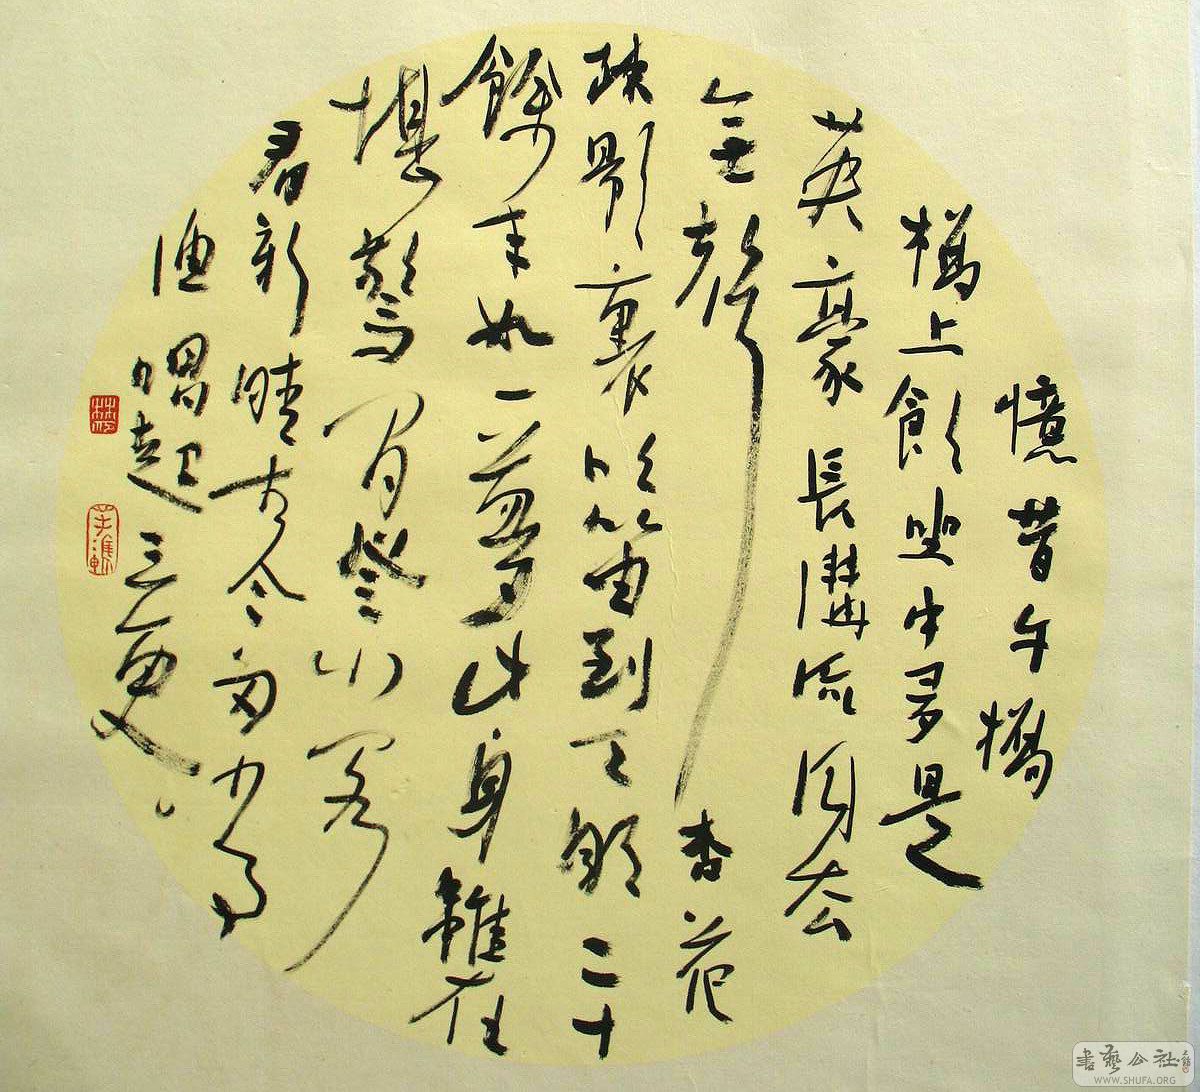 憶昔午橋
橋上飲坐中多是
英豪長溝流月去
無聲杏花
疎影裏吹笛到天明二十
餘年如一夢此身雖在
堪驚閒登小閣
看新晴古今多少事
漁唱起三更
書藝公社
WWW.SHUFA.ORG